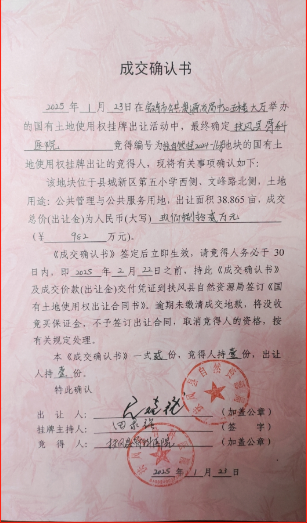 成交确认书
2025 年 1 月 23日在 举办
的国有土地使用权挂牌出让活动中，最终确定 扶风县骨科
医院 竞得编号为 地块的国有土
地使用权挂牌出让的竞得人，现将有关事项确认如下：
该地块位于县城新区第五小学西侧、文峰路北侧，土地
用途：公共管理与公共服务用地，出让面积 38.865 亩，成交
总价(出让金)为人民币(大写) 玖佰捌拾贰万元
(￥ 982 万元)。
《成交确认书》签定后立即生效，请竞得人务必于 30
日内，即 2025 年 2 月 22 日之前，持此《成交确认书》
及成交价款(出让金)交付凭证到扶风县自然资源局签订《国
有土地使用权出让合同书》。逾期未缴清成交地款，将没收
竞买保证金，不予签订出让合同，取消竞得人的资格，按
有关规定处理。
本《成交确认书》一式贰份，竞得人持壹份，出让
人持壹份。
特此确认
出 让 人： （加盖公章）
挂牌主持人： （签 字）
竞 得 人：扶风县骨科医院 （加盖公章）
2025 年 1 月 23 日
扶风县自然资源局